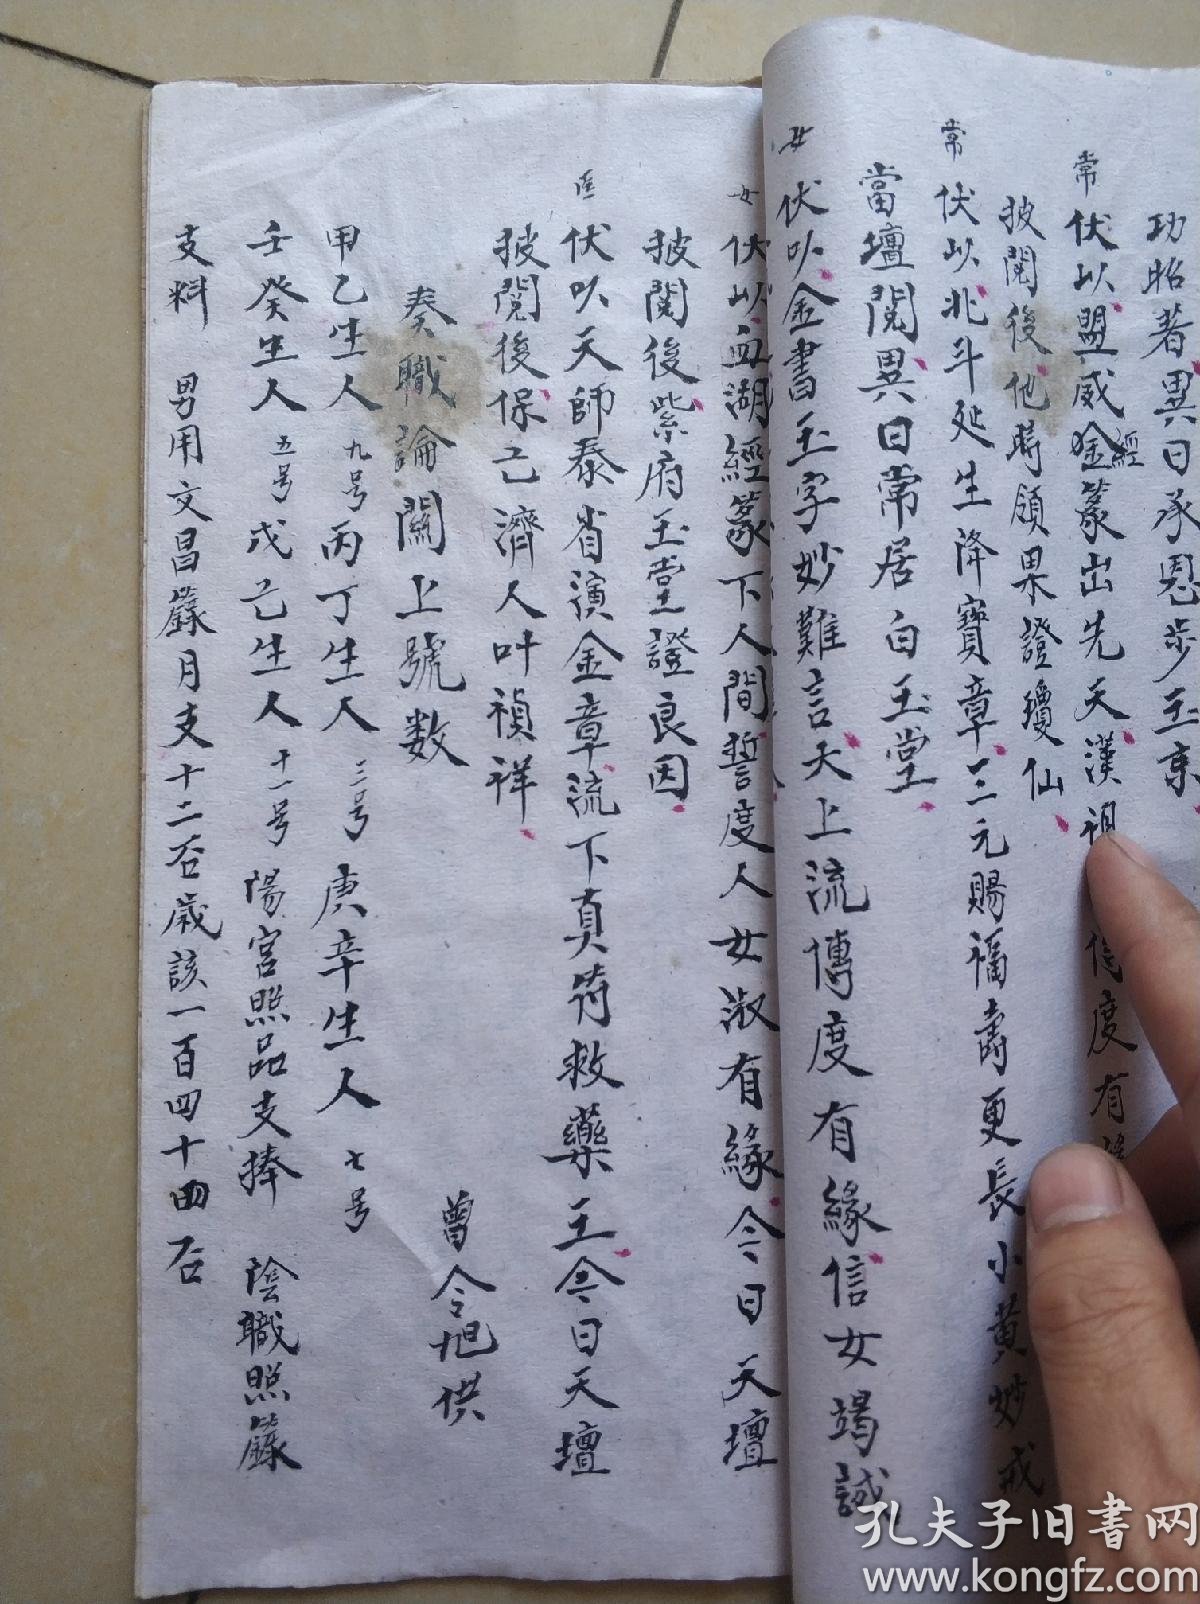 功昭著異日承恩步玉京
常 伏以盟威金經篆出先天漢祖 信度有緣
披閱後他時領果證瓊仙
常 伏以北斗延生降寶章三元賜福壽更長小黄妙戒
當壇閱異日常居白玉堂
女 伏以金書玉字妙難言天上流傳度有緣信女竭誠
女 伏以血湖經篆下人間誓度人女淑有緣今日天壇
披閱後紫府玉堂證良因
医 伏以天師泰省演金章流下真符救藥王今日天壇
披閱後保己濟人叶禎祥
奏職論闗上號数 曾令旭供
甲乙生人 九号 丙丁生人 三号 庚辛生人 七号
壬癸生人 五号 戊己生人 十一号 陽宫照品支捧 陰職照籙
支料 男用文昌籙月支十二石歲該一百四十四石
孔夫子旧书网
www.kongfz.com